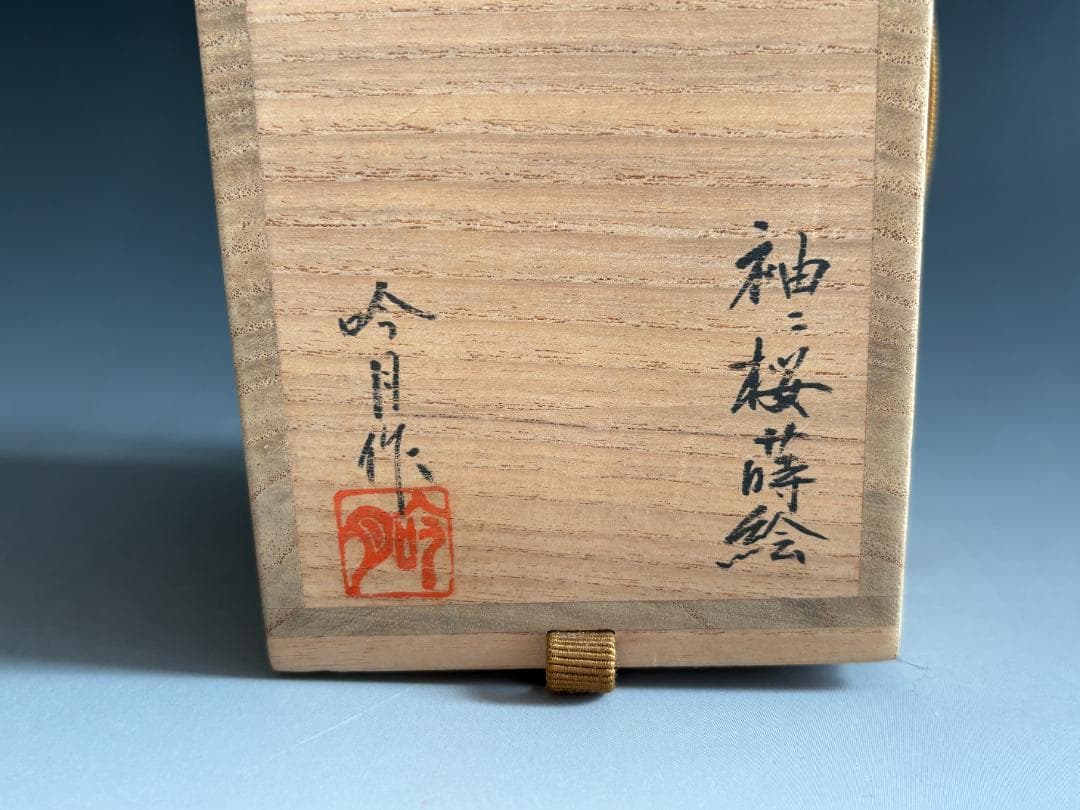 袖ニ桜蒔絵
吟月作
吟月